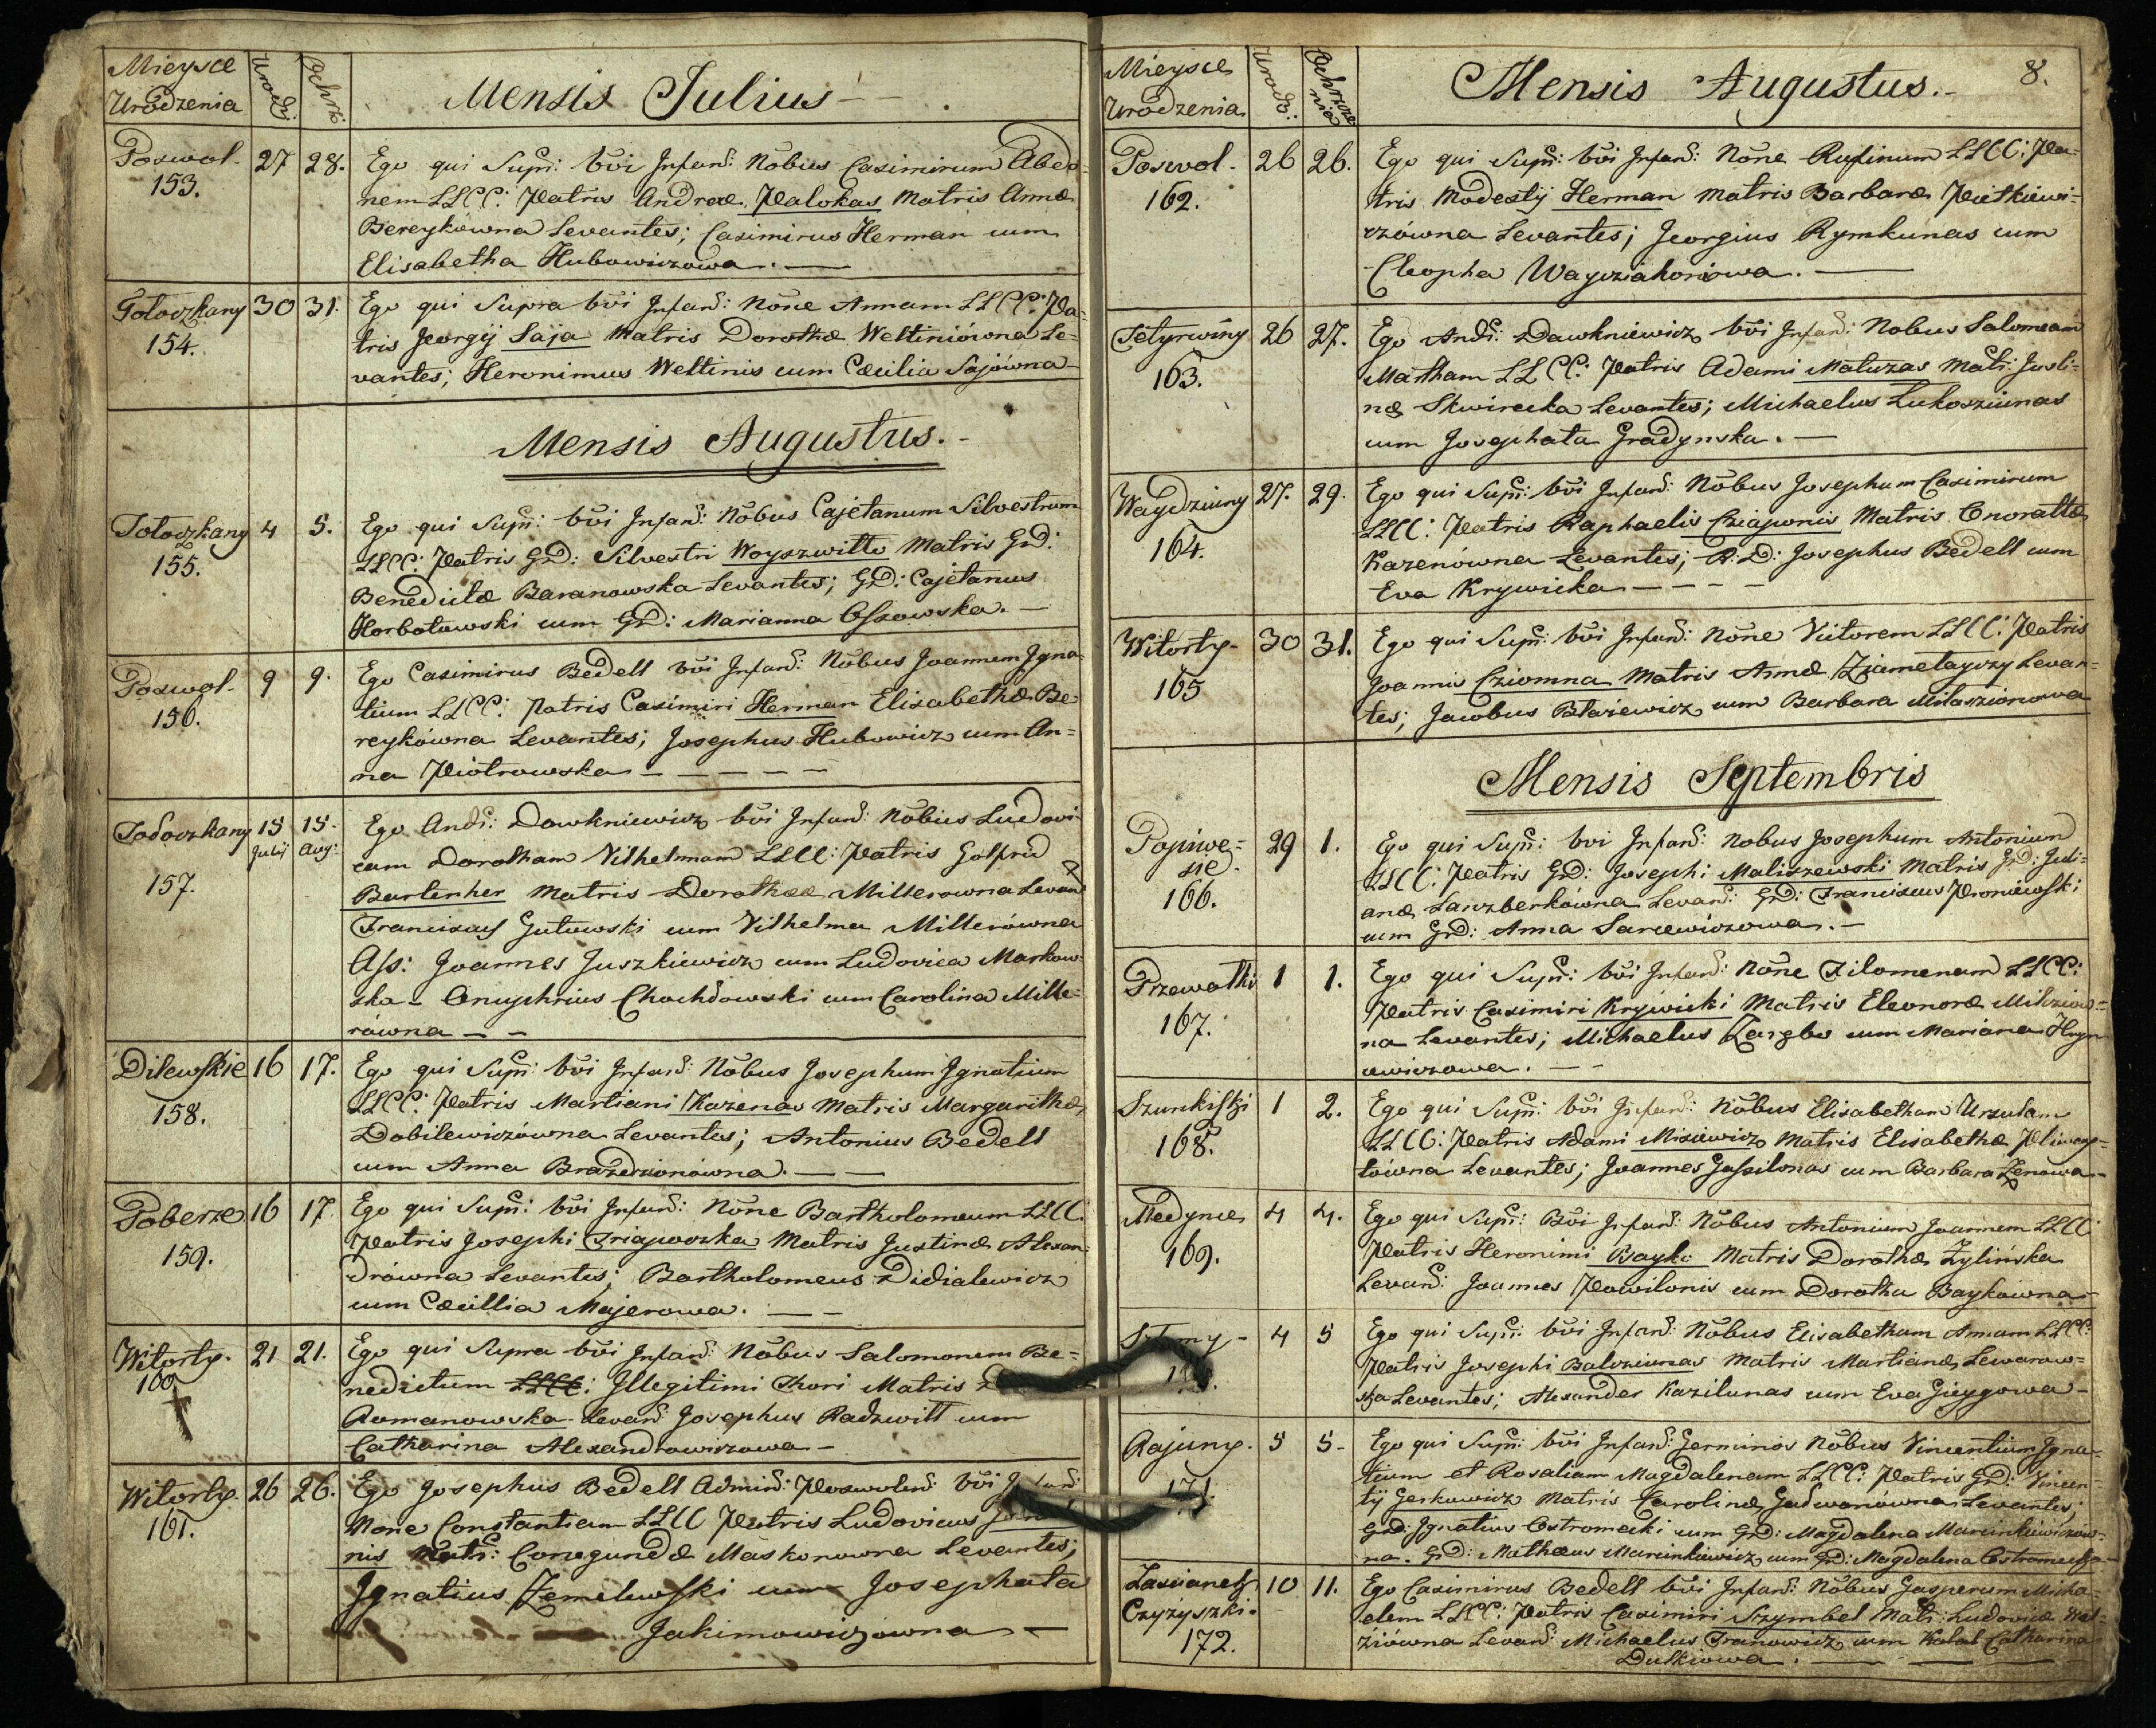 Mieysce Urodzenia Urodz: Ochrz:
Mensis Julius
Poswol. 153. 27 28.
Ego qui Supr: bvi Infan: Nobus Casimirum Abdo-
nem LLCC: Patris Andreæ Palokas Matris Annæ
Bereykówna Levantes; Casimirus Herman cum
Elisabetha Hubowiczowa.
Tołoczkany 154. 30 31.
Ego qui Supra bvi Infan: None Annam LLCC: Pa-
tris Georgij Saja Matris Dorothæ Weltiniówna Le-
vantes; Heronimus Weltinis cum Cæcilia Sajówna
Mensis Augustus.
Tołoczkany 155. 4 5.
Ego qui Supr: bvi Infan: Nobus Cajetanum Silvestrum
LLCC: Patris GD: Silvestri Woyszwiłło Matris GD:
Benedictæ Baranowska Levantes; GD: Cajetanus
Horbotowski cum GD: Marianna Ossowska.
Poswol. 156. 9 9.
Ego Casimirus Bedell bvi Infan: Nobus Joannem Igna-
tium LLCC: Patris Casimiri Herman Elisabethæ Be-
reykówna Levantes; Josephus Hubowicz cum An-
na Piotrowska
Tołoczkany 157. 15 Julij 15. Aug:
Ego Andr: Dowkniewicz bvi Infan: Nobus Ludovi-
cam Dorotham Vilhelmam LLCC: Patris Golfrid
Bartenher Matris Dorotheæ Millerowna Levan
Franciscus Gutowski cum Vilhelma Millerówna
Ass: Joannes Juszkiewicz cum Ludovica Markow-
ska - Onuphrius Chochdowski cum Carolina Mille-
równa
Dilewskie 158. 16 17.
Ego qui Supr: bvi Infan: Nobus Josephum Ignatium
LLCC: Patris Martiani Kazenas Matris Margarithæ
Dobilewiczówna Levantes; Antonius Bedell
cum Anna Brazdzionówna.
Poberze 159. 16 17
Ego qui Supr: bvi Infan: None Bartholomeum LLCC:
Patris Josephi Triapszka Matris Justinæ Alexan-
drówna Levantes; Bartholomeus Didialewicz
cum Cæcillia Majerowa.
Witorty. 160 21 21.
Ego qui Supra bvi Infan: Nobus Salomonem Be-
nedictum LLCC: Illegitimi Thori Matris
Romanowska Levan: Josephus Radzwiłł cum
Catharina Alexandrowiczowa
Witorty. 161. 26 26.
Ego Josephus Bedell Admin: Poswolen: bvi
None Constantiam LLCC Patris Ludovicus
nis Matr: Conegundæ Maskonowna Levantes;
Ignatius Zemelewski cum Josephata
Jakimowiczowna
Mieysce Urodzenia Urodz: Ochrzcze nia
Mensis Augustus. 8.
Poswol. 162. 26 26.
Ego qui Supr: bvi Infan: None Rufinum LLCC: Pa-
tris Modestij Herman Matris Barbaræ Pietkiewi-
czówna Levantes; Georgius Rymkunas cum
Cleopha Wayciahoniowa.
Tetyrwiny 163. 26 27.
Ego Andr: Dawkniewicz bvi Infan: Nobus Salomeam
Martham LLCC: Patris Adami Matuzas Matr: Justi-
næ Skwirecka Levantes; Michaelus Łukosziunas
cum Josephata Gradynska.
Waydziuny 164. 27. 29.
Ego qui Supr: bvi Infan: Nobus Josephum Casimirum
LLCC: Patris Raphaelis Cziaponis Matris Onorattæ
Kazenówna Levantes; R: D: Josephus Bedell cum
Eva Krywicka
Witorty. 165 30 31.
Ego qui Supr: bvi Infan: None Victorem LLCC: Patris
Joannis Cziomna Matris Annæ Ziametayczy Levan-
tes; Jacobus Błażewicz cum Barbara Miłaszionowa
Mensis Septembris
Popiwe- sie. 166. 29 1.
Ego qui Supr: bvi Infan: Nobus Josephum Antonium
LLCC: Patris GD: Josephi Maliszewski Matris GD: Juli-
anæ Laszberkówna Levan: GD: Franciscus Proniewski
cum GD: Anna Sarcewiczowa.
Przewałki 167. 1 1.
Ego qui Supr: bvi Infan: None Filomenam LLCC:
Patris Casimiri Krywicki Matris Eleonoræ Milziow-
na Levantes; Michaelus Zargbo cum Mariana Hryn
cewiczowa.
Szunkiszki 168. 1 2.
Ego qui Supr: bvi Infan: Nobus Elisabetham Ursulam
LLCC: Patris Adami Misiewicz Matris Elisabethæ Pliwap-
lówna Levantes; Joannes Gassilonas cum Barbara Zenowa
Medynie 169. 4 4.
Ego qui Supr: Bvi Infan: Nobus Antonium Joannem LLCC
Patris Heronimi Bayko Matris Dorothæ Żylińska
Levan: Joannes Powilonis cum Dorotha Baykówna
4 5
Ego qui Supr: bvi Infan: Nobus Elisabetham Annam LLCC:
Patris Josephi Balcziunas Matris Martianæ Lewarow-
ska Levantes; Alexander Kazilunas cum Eva Gieygowa
Rajuny. 171. 5 5
Ego qui Supr: bvi Infan: Germinos Nobus Vincentium Igna-
tium et Rosaliam Magdalenam LLCC: Patris GD: Vincen-
tij Gerkowicz Matris Carolinæ Gudwanówna Levantes;
GD: Ignatius Ostromecki cum GD: Magdalena Marcinkiewiczów-
na. GD: Mathæus Marcinkiewicz cum GD: Magdalena Ostromecka
Zascianek Czyżyszki. 172. 10 11.
Ego Casimirus Bedell bvi Infan: Nobus Gasperum Micha-
elem LLCC: Patris Casimiri Szymbel Matr: Ludovicæ Wal-
ziówna Levan: Michaelus Franowicz cum Catharina
Dulkiowa.